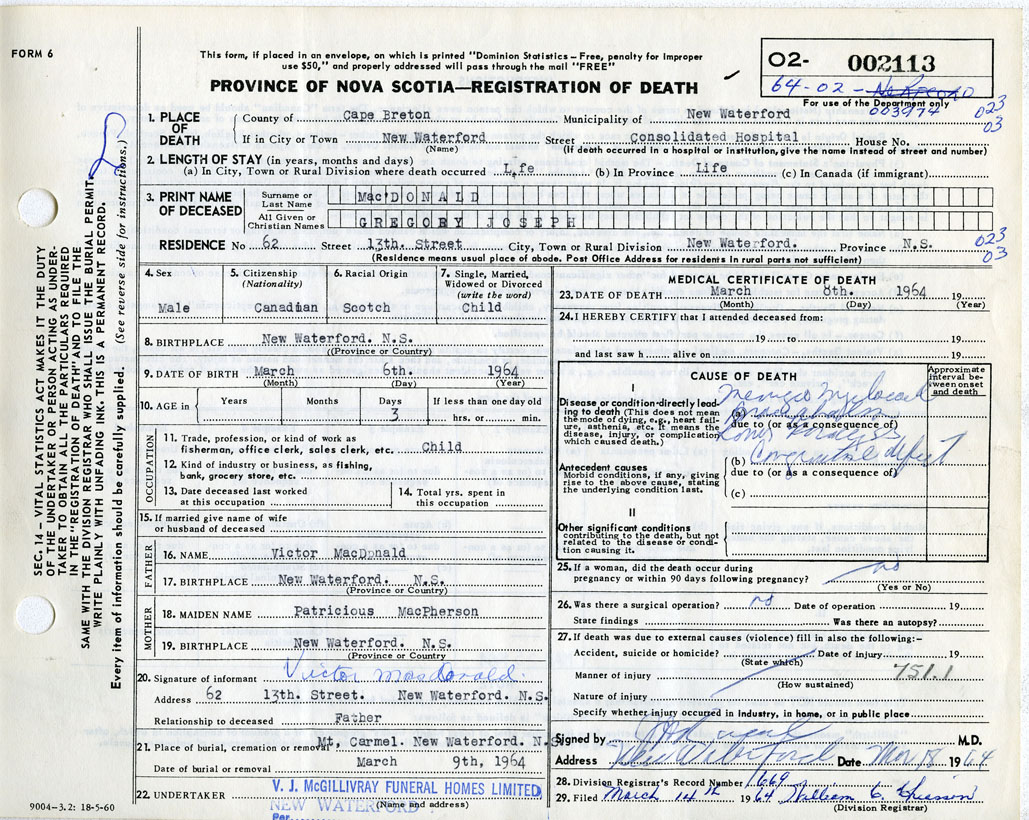 FORM 6
This form, if placed in an envelope, on which is printed "Dominion Statistics – Free, penalty for improper
use $50," and properly addressed will pass through the mail "FREE"
PROVINCE OF NOVA SCOTIA—REGISTRATION OF DEATH
02- 002113
64-02-
For use of the Department only
003974
023
03
1. PLACE OF DEATH
County of Cape Breton Municipality of New Waterford
If in City or Town New Waterford Street Consolidated Hospital House No.
(Name) (If death occurred in a hospital or institution, give the name instead of street and number)
2. LENGTH OF STAY (in years, months and days)
(a) In City, Town or Rural Division where death occurred Life (b) In Province Life (c) In Canada (if immigrant)
3. PRINT NAME OF DECEASED
Surname or Last Name MacDONALD
All Given or Christian Names GREGORY JOSEPH
RESIDENCE No 62 Street 13th. Street City, Town or Rural Division New Waterford. Province N.S.
(Residence means usual place of abode. Post Office Address for residents in rural parts not sufficient)
023
03
4. Sex
Male
5. Citizenship
(Nationality)
Canadian
6. Racial Origin
Scotch
7. Single, Married,
Widowed or Divorced
(write the word)
Child
8. BIRTHPLACE New Waterford. N.S.
((Province or Country)
9. DATE OF BIRTH March 6th. 1964
(Month) (Day) (Year)
10. AGE in Years Months Days If less than one day old
3 hrs. or min.
OCCUPATION
11. Trade, profession, or kind of work as
fisherman, office clerk, sales clerk, etc. Child
12. Kind of industry or business, as fishing,
bank, grocery store, etc.
13. Date deceased last worked
at this occupation
14. Total yrs. spent in
this occupation
15. If married give name of wife
or husband of deceased
FATHER
16. NAME Victor MacDonald
17. BIRTHPLACE New Waterford. N.S.
(Province or Country)
MOTHER
18. MAIDEN NAME Patricious MacPherson
19. BIRTHPLACE New Waterford. N.S.
(Province or Country
20. Signature of informant Victor MacDonald.
Address 62 13th. Street. New Waterford. N.S.
Relationship to deceased Father
21. Place of burial, cremation or removal Mt, Carmel. New Waterford. N.S.
Date of burial or removal March 9th, 1964
22. UNDERTAKER V. J. McGILLIVRAY FUNERAL HOMES LIMITED
(Name and address)
NEW WATERFORD
Per
MEDICAL CERTIFICATE OF DEATH
23. DATE OF DEATH March 8th. 1964 19
(Month) (Day) (Year)
24. I HEREBY CERTIFY that I attended deceased from:
19 to 19
and last saw h alive on 19
CAUSE OF DEATH
Approximate interval between onset and death
I
Disease or condition directly leading to death (This does not mean the mode of dying, e.g., heart failure, asthenia, etc. It means the disease, injury, or complication which caused death.)
(a)
due to (or as a consequence of)
Antecedent causes
Morbid conditions, if any, giving rise to the above cause, stating the underlying condition last.
(b) Congenital defect
due to (or as a consequence of)
(c)
II
Other significant conditions
contributing to the death, but not related to the disease or condition causing it.
25. If a woman, did the death occur during
pregnancy or within 90 days following pregnancy? no
(Yes or No)
26. Was there a surgical operation? no Date of operation 19
State findings Was there an autopsy?
27. If death was due to external causes (violence) fill in also the following:–
Accident, suicide or homicide? Date of injury 19
(State which)
Manner of injury 751.1
(How sustained)
Nature of injury
Specify whether injury occurred in industry, in home, or in public place
Signed by M.D.
Address New Waterford Date Mar 18 1964
28. Division Registrar's Record Number 1669
29. Filed March 14th 1964 William C.
(Division Registrar)
SEC. 14 – VITAL STATISTICS ACT MAKES IT THE DUTY
OF THE UNDERTAKER OR PERSON ACTING AS UNDER-
TAKER TO OBTAIN ALL THE PARTICULARS REQUIRED
IN THE "REGISTRATION OF DEATH" AND TO FILE THE
SAME WITH THE DIVISION REGISTRAR WHO SHALL ISSUE THE BURIAL PERMIT
WRITE PLAINLY WITH UNFADING INK. THIS IS A PERMANENT RECORD.
Every item of information should be carefully supplied. (See reverse side for instructions.)
9004–3.2: 18-5-60